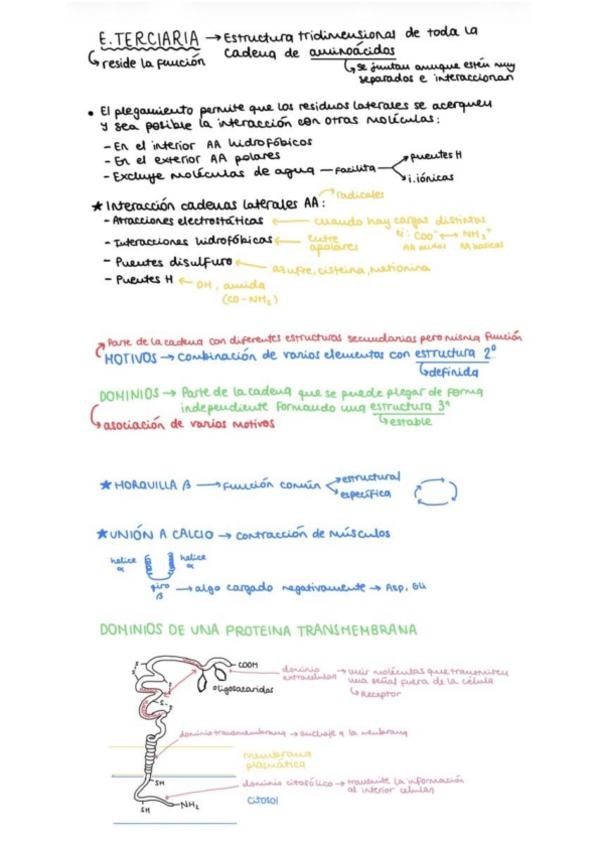 E. TERCIARIA → Estructura tridimensional de toda la
cadena de aminoácidos
reside la función
se juntan aunque estén muy
separados e interaccionan
• El plegamiento permite que los residuos laterales se acerquen
y sea posible la interacción con otras moléculas:
- En el interior AA hidrofóbicos
- En el exterior AA polares
- Excluye moléculas de agua — facilita
puentes H
i. iónicas
radicales
★ Interacción cadenas laterales AA:
- Atracciones electrostáticas ← cuando hay cargas distintas
Ej: COO⁻ ↔ NH₃⁺
- Interacciones hidrofóbicas ← entre
apolares
- Puentes disulfuro ← azufre, cisteina, metionina
- Puentes H ← OH, amida
(CO-NH₂)
Parte de la cadena con diferentes estructuras secundarias pero misma función
MOTIVOS → combinación de varios elementos con estructura 2º
definida
DOMINIOS → Parte de la cadena que se puede plegar de forma
independiente formando una estructura 3ª
estable
asociación de varios motivos
★ HORQUILLA β → Función común
estructural
específica
★ UNIÓN A CALCIO → contracción de músculos
helice
α
helice
α
giro
β
→ algo cargado negativamente → Asp, Glu
DOMINIOS DE UNA PROTEINA TRANSMEMBRANA
COOH
oligosacaridos
dominio
extracelular
→ unir moléculas que transmiten
una señal fuera de la célula
Receptor
dominio transmembrana → anclaje a la membrana
membrana
plasmática
dominio citosólico → transmite la información
al interior celular
SH
SH
NH₂
Citosol